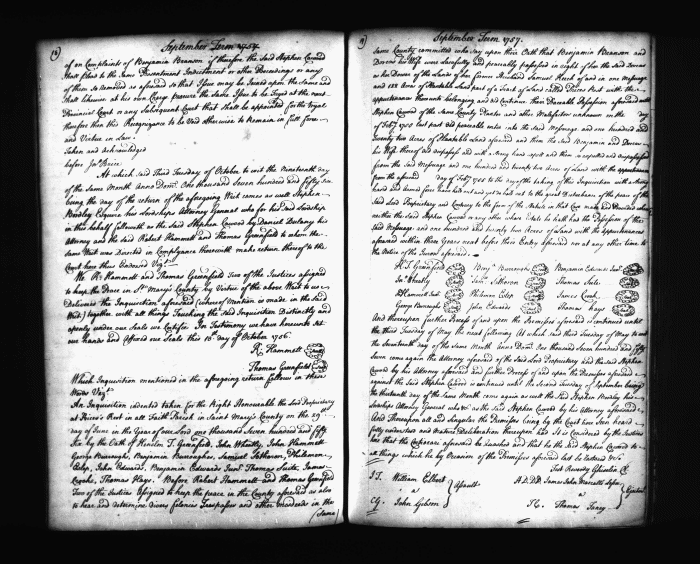 September Term 1757
of on Complaints of Benjamin Branson if therefore the said Stephen Cawood
shall plead to the same Presentment Indictment or other Proceedings or any
of them so removed as aforesaid so that Issue may be Joined upon the same and
shall likewise at his own Charge procure the same Issue to be Tryed at the next
Provincial Court or any Subsequent Court that shall be appointed for the Tryal
thereof then this Recognizance to be Void otherwise to Remain in full force
and Virtue in Law
Taken and acknowledged
before Jno Brice
At which said Third Tuesday of October to wit the Nineteenth day
of the same Month Anno Domi One thousand Seven hundred and fifty Six
being the day of the return of the aforegoing Writ comes as well Stephen
Bordley Esquire his Lordships Attorney General who for his said Lordship
in this behalf followeth as the said Stephen Cawood by Daniel Dulany his
Attorney and the said Robert Hammett and Thomas Greenfield to whom the
same Writ was Directed in Compliance therewith make return thereof to the
Court here thus Endorsed Vizt
We Rt Hammett and Thomas Greenfield Two of the Justices assigned
to keep the Peace in St Marys County by Virtue of the above Writ to us
Delivered the Inquisition aforesaid (whereof Mention is made in the said
Writ) together with all things Touching the said Inquisition Distinctly and
openly under our Seals we Certifie In Testimony we have hereunto set
our hands and Affixed our Seals this 15th day of October 1756
R Hammett
Thomas Greenfield
Which Inquisition mentioned in the aforegoing return follows in these
Words Vizt
An Inquisition indented taken for the Right Honourable the Lord Proprietary
at Price's Rest in All Faith Parish in Saint Mary's County on the 29th
day of June in the Year of our Lord one thousand Seven hundred and fifty
Six by the Oath of T. Greenfield, John Wheatly, John Hammett
George Burroughs, Benjamin Burroughs, Samuel Sothoron, Philemon
Estep, John Edwards, Benjamin Edwards Junr Thomas Suite James
Cooke, Thomas Hays. Before Robert Hammett and Thomas Greenfield
Two of the Justices Assigned to keep the peace in the County aforesaid as also
to hear and determine divers felonies Trespasses and other misdeeds in the
(same
September Term 1757.
same County committed who say upon their Oath that Benjamin Branson and
his Wife was lawfully and peaceably possessed in right of her the said
as her Dower of the Lands of her former Husband Samuel of and in one Messuage
and 122 Acres of Plantable Land part of a Tract of Land called Price's Rest with the
appurtenances thereunto belonging and did Continue their Peaceable Possession aforesaid until
Stephen Cawood of the same County Planter and other Malefactors unknown on the day
of Febry 1755 last past did peaceably enter into the said Messuage and one hundred and
twenty two Acres of Plantable Land aforesaid and them the said Benjamin and
his Wife thereof did dispossess and with strong hand
from the said Messuage and one hundred and twenty two Acres of Land with the appurtenances
from the aforesaid day of Febry 1755 to the day of the taking of this Inquisition with strong
hand and armed force
said Lord Proprietary and Contrary to the form of the Statute in that Case made and Provided
neither the said Stephen Cawood or any other whose Estate he hath had the Possession of the
said Messuage and one hundred and twenty two Acres of Land with the appurtenances
aforesaid within three Years next before their Entry aforesaid nor at any other time to
the Notice of the Jurors aforesaid
T Greenfield Benja Burroughs Benjamin Edwards Junr
Jno Wheatly Saml Sothoron Thomas Suite
J Hammett Philemon Estep James Cook
George Burroughs John Edwards Thomas Hays
And thereupon further Process of and upon the Premisses aforesaid is continued untill
the third Tuesday of May the next following At which said third Tuesday of May to wit
the Seventeenth day of the same Month Anno Domi One thousand Seven hundred and fifty
Seven come again the Attorney aforesaid of the said Lord Proprietary and the said Stephen
Cawood by his Attorney aforesaid and further Process of and upon the Premisses aforesaid
against the said Stephen Cawood is continued untill the Second Tuesday of September being
the thirteenth day of the same Month came again as well the said Stephen Bordley his
Lordships Attorney General who &c as the said Stephen Cawood by his Attorney aforesaid
And Thereupon all and Singular the Premisses being by the Court here Seen heard
fully understood and Mature Deliberation thereupon had it is Considered by the Justices
here that the Conservacon aforesaid be Quashed and that he the said Stephen Cawood to
all things which he by Occasion of the Premisses aforesaid
William Elbert
a
John Gibson
Assault
James John Mackall
a
Thomas Toney
Ejectment